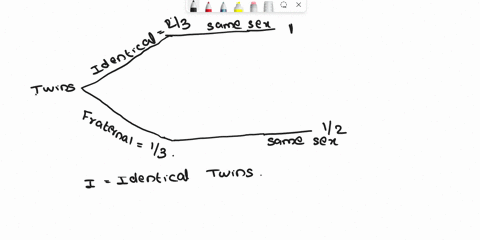 Identical = 2/3 same sex 1
Twins
Fraternal = 1/3.
1/2
same sex
I = Identical Twins.